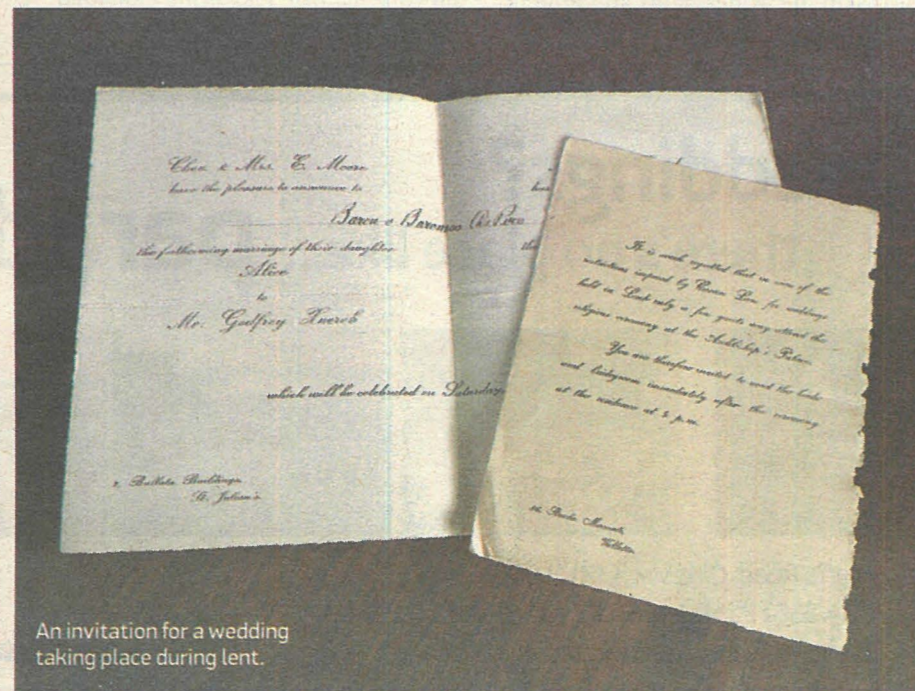 & Mrs. E. Moore
have the pleasure to announce to
Baron e Baroness
the forthcoming marriage of their daughter
Alice
to
Mr. Godfrey
which will be celebrated on Saturday
Buildings,
St. Julian's
It is much regretted that in view of the
restrictions imposed by Canon Law for weddings
held in Lent only a few guests may attend the
religious ceremony at the Archbishop's Palace.
You are therefore invited to meet the bride
and bridegroom immediately after the ceremony
at the residence at 5 p.m.
Valletta.
An invitation for a wedding
taking place during lent.